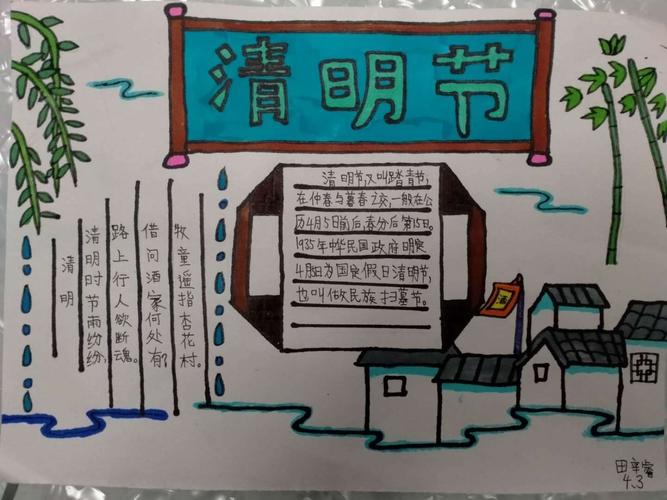 清明节
清明
清明时节雨纷纷,
路上行人欲断魂。
借问酒家何处有?
牧童遥指杏花村。
清明节,又叫踏青节,
在仲春与暮春之交,一般在公
历4月5日前后,春分后第15日。
1935年中华民国政府明定
4月5日为国定假日清明节,
也叫做民族扫墓节。
酒
4.3